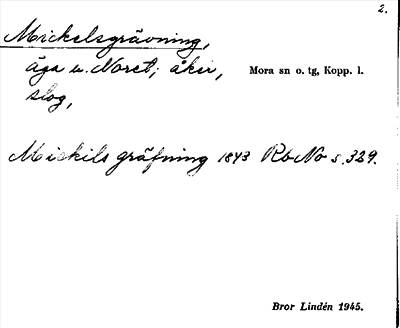 2.
Mickelsgrävning,
äga u. Noret; åker, Mora sn o. tg, Kopp. l.
slog,
Mickils gräfning 1843 RbNo s. 329.
Bror Lindén 1945.